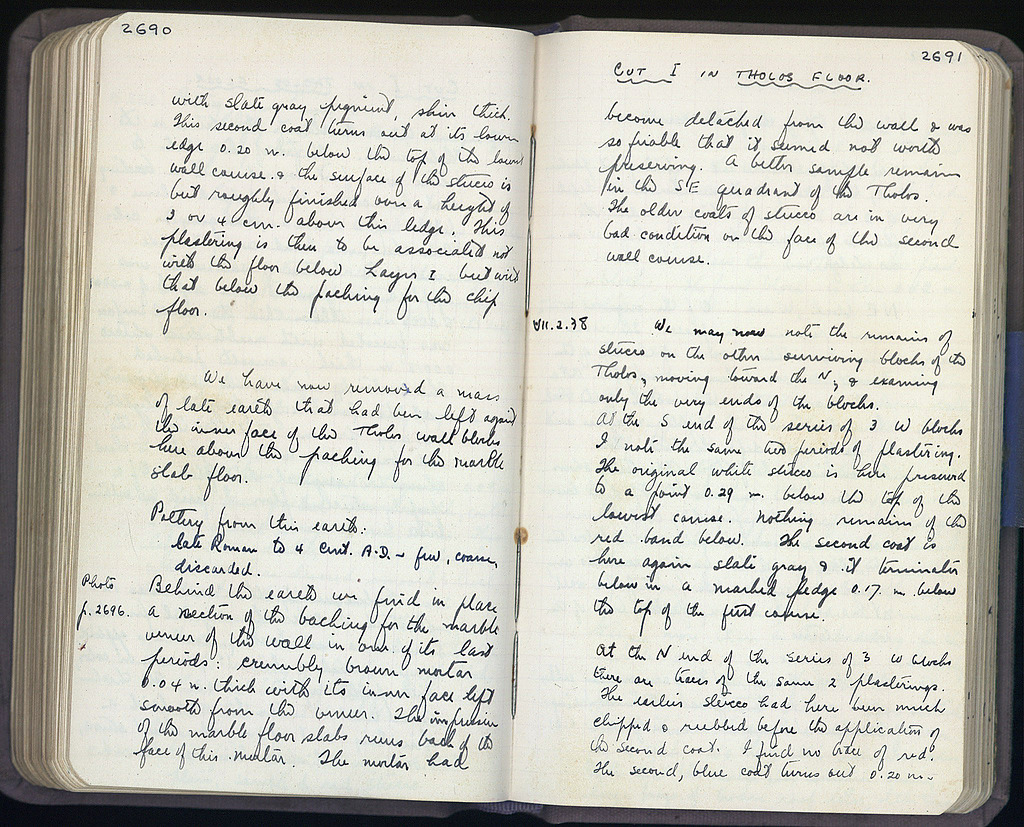 2690
with slate gray pigment, skin thick.
This second coat turns out at its lower
edge 0.20 m. below the top of the lowest
wall course & the surface of the stucco is
but roughly finished over a height of
3 or 4 cm. above this ledge. This
plastering is then to be associated not
with the floor below Layer I but with
that below the packing for the chip
floor.
We have now removed a mass
of late earth that had been left against
the inner face of the Tholos wall blocks
here above the packing for the marble
slab floor.
Pottery from this earth.
late Roman to 4 cent. A.D. – few, coarse,
discarded.
Photo
p. 2696.
Behind the earth we find in place
a section of the backing for the marble
veneer of the wall in one of its last
periods: crumbly brown mortar
0.04 m. thick with its inner face left
smooth from the veneer. The impression
of the marble floor slabs runs back of the
face of this mortar. The mortar had
2691
CUT I IN THOLOS FLOOR.
become detached from the wall & was
so friable that it seemed not worth
preserving. A better sample remains
in the SE quadrant of the Tholos.
The older coats of stucco are in very
bad condition on the face of the second
wall course.
VII.2.38
We may now note the remains of
stucco on the other surviving blocks of the
Tholos, moving toward the N, & examining
only the very ends of the blocks.
At the S end of the series of 3 W blocks
I note the same two periods of plastering.
The original white stucco is here preserved
to a point 0.29 m. below the top of the
lowest course. Nothing remains of the
red band below. The second coat is
here again slate gray & it terminates
below in a marked ledge 0.17 m. below
the top of the first course.
At the N end of the series of 3 W blocks
there are traces of the same 2 plasterings.
The earlier stucco had here been much
chipped & rubbed before the application of
the second coat. I find no trace of red.
The second, blue coat turns out 0.20 m.